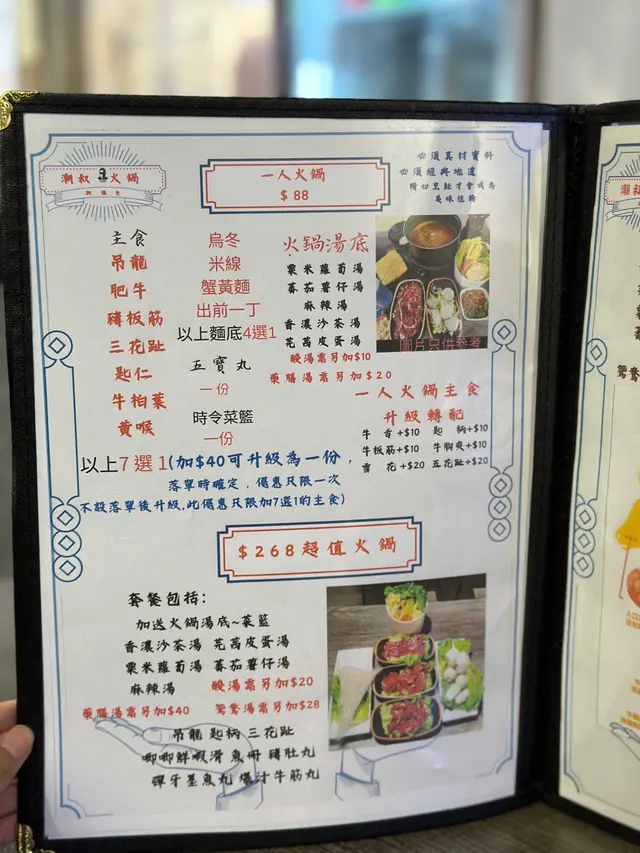 潮叔 火鍋
潮 樓 食
一人火鍋
$ 88
必須真材實料
必須經典地道
精心烹飪才會成為
美味佳餚
主食
吊龍
肥牛
豬板筋
三花趾
匙仁
牛柏葉
黄喉
烏冬
米線
蟹黃麵
出前一丁
以上麵底4選1
五寶丸
一份
時令菜籃
一份
火鍋湯底
粟米蘿蔔湯
蕃茄薯仔湯
麻辣湯
香濃沙茶湯
芫茜皮蛋湯
酸湯需另加$10
藥膳湯需另加$20
圖片只供參考
一人火鍋主食
升級轉配
牛舌+$10 匙柄+$10
牛板筋+$10 牛胸爽+$10
雪花+$20 五花趾+$20
以上7選1(加$40可升級為一份,
落單時確定,優惠只限一次
不設落單後升級,此優惠只限加7選1的主食)
$268超值火鍋
套餐包括:
加送火鍋湯底~菜籃
香濃沙茶湯 芫茜皮蛋湯
粟米蘿蔔湯 蕃茄薯仔湯
麻辣湯 酸湯需另加$20
藥膳湯需另加$40 鴛鴦湯需另加$28
吊龍 匙柄 三花趾
唧唧鮮蝦滑 魚冊 豬肚丸
彈牙墨魚丸 爆汁牛筋丸